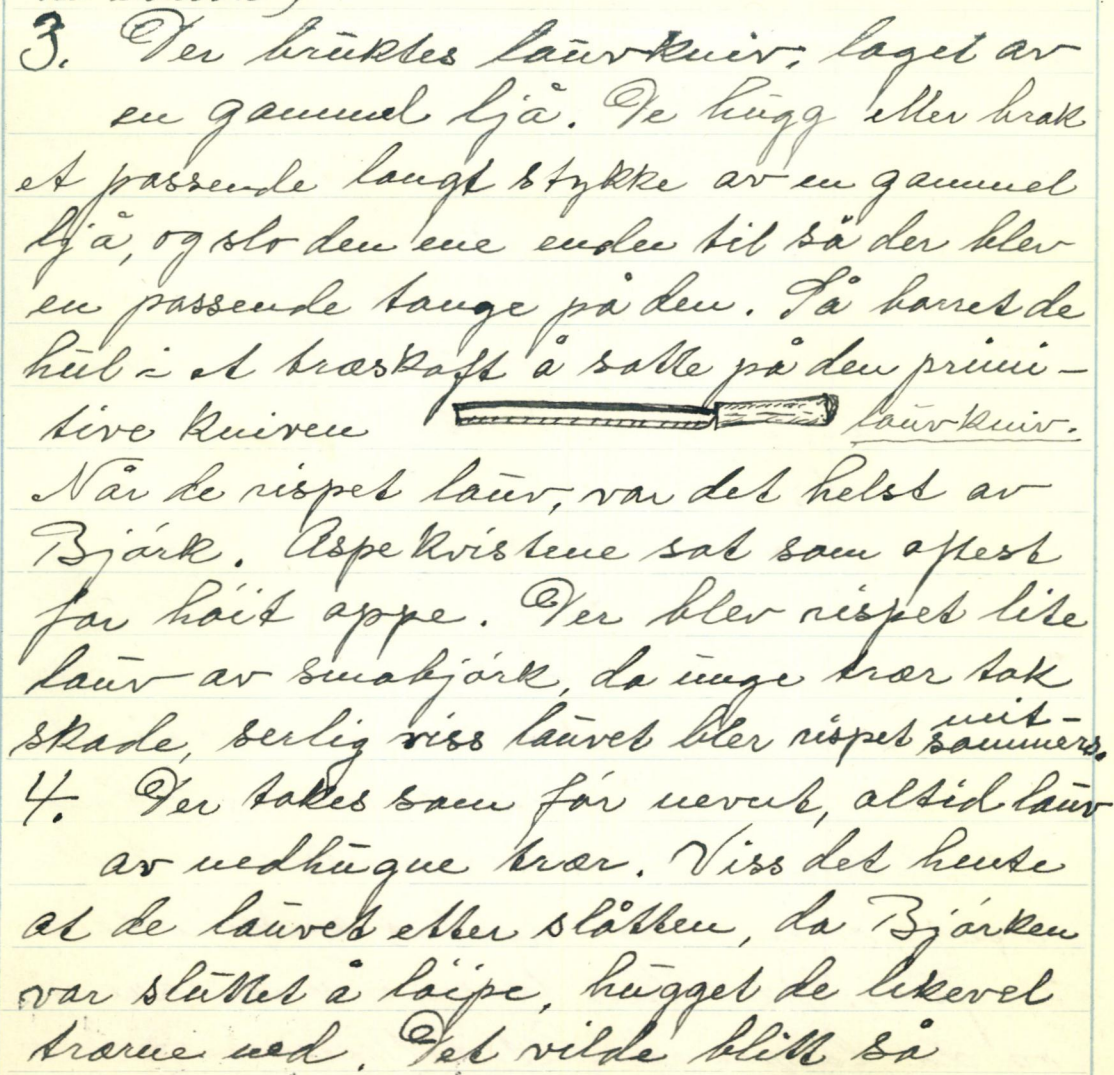 3. Der bruktes lauvkniv, laget av
en gammel ljå. De hugg eller brak
et passende langt stykke av en gammel
ljå, og slo den ene enden til så der blev
en passende tange på den. Så borret de
hul i et træskaft å satte på den primi-
tive kniven lauvkniv.
Når de rispet lauv, var det helst av
Bjørk. Aspekvistene sat som oftest
for høit oppe. Der blev rispet lite
lauv av småbjørk, da unge trær tok
skade, serlig viss lauvet blev rispet mit-
sommers.
4. Der tokes som før nevnt, altid lauv
av nedhugne trær. Viss det hente
at de lauvet etter slåtten, da Bjørken
var sluttet å løipe, hugget de likevel
trærne ned. Det vilde blitt så